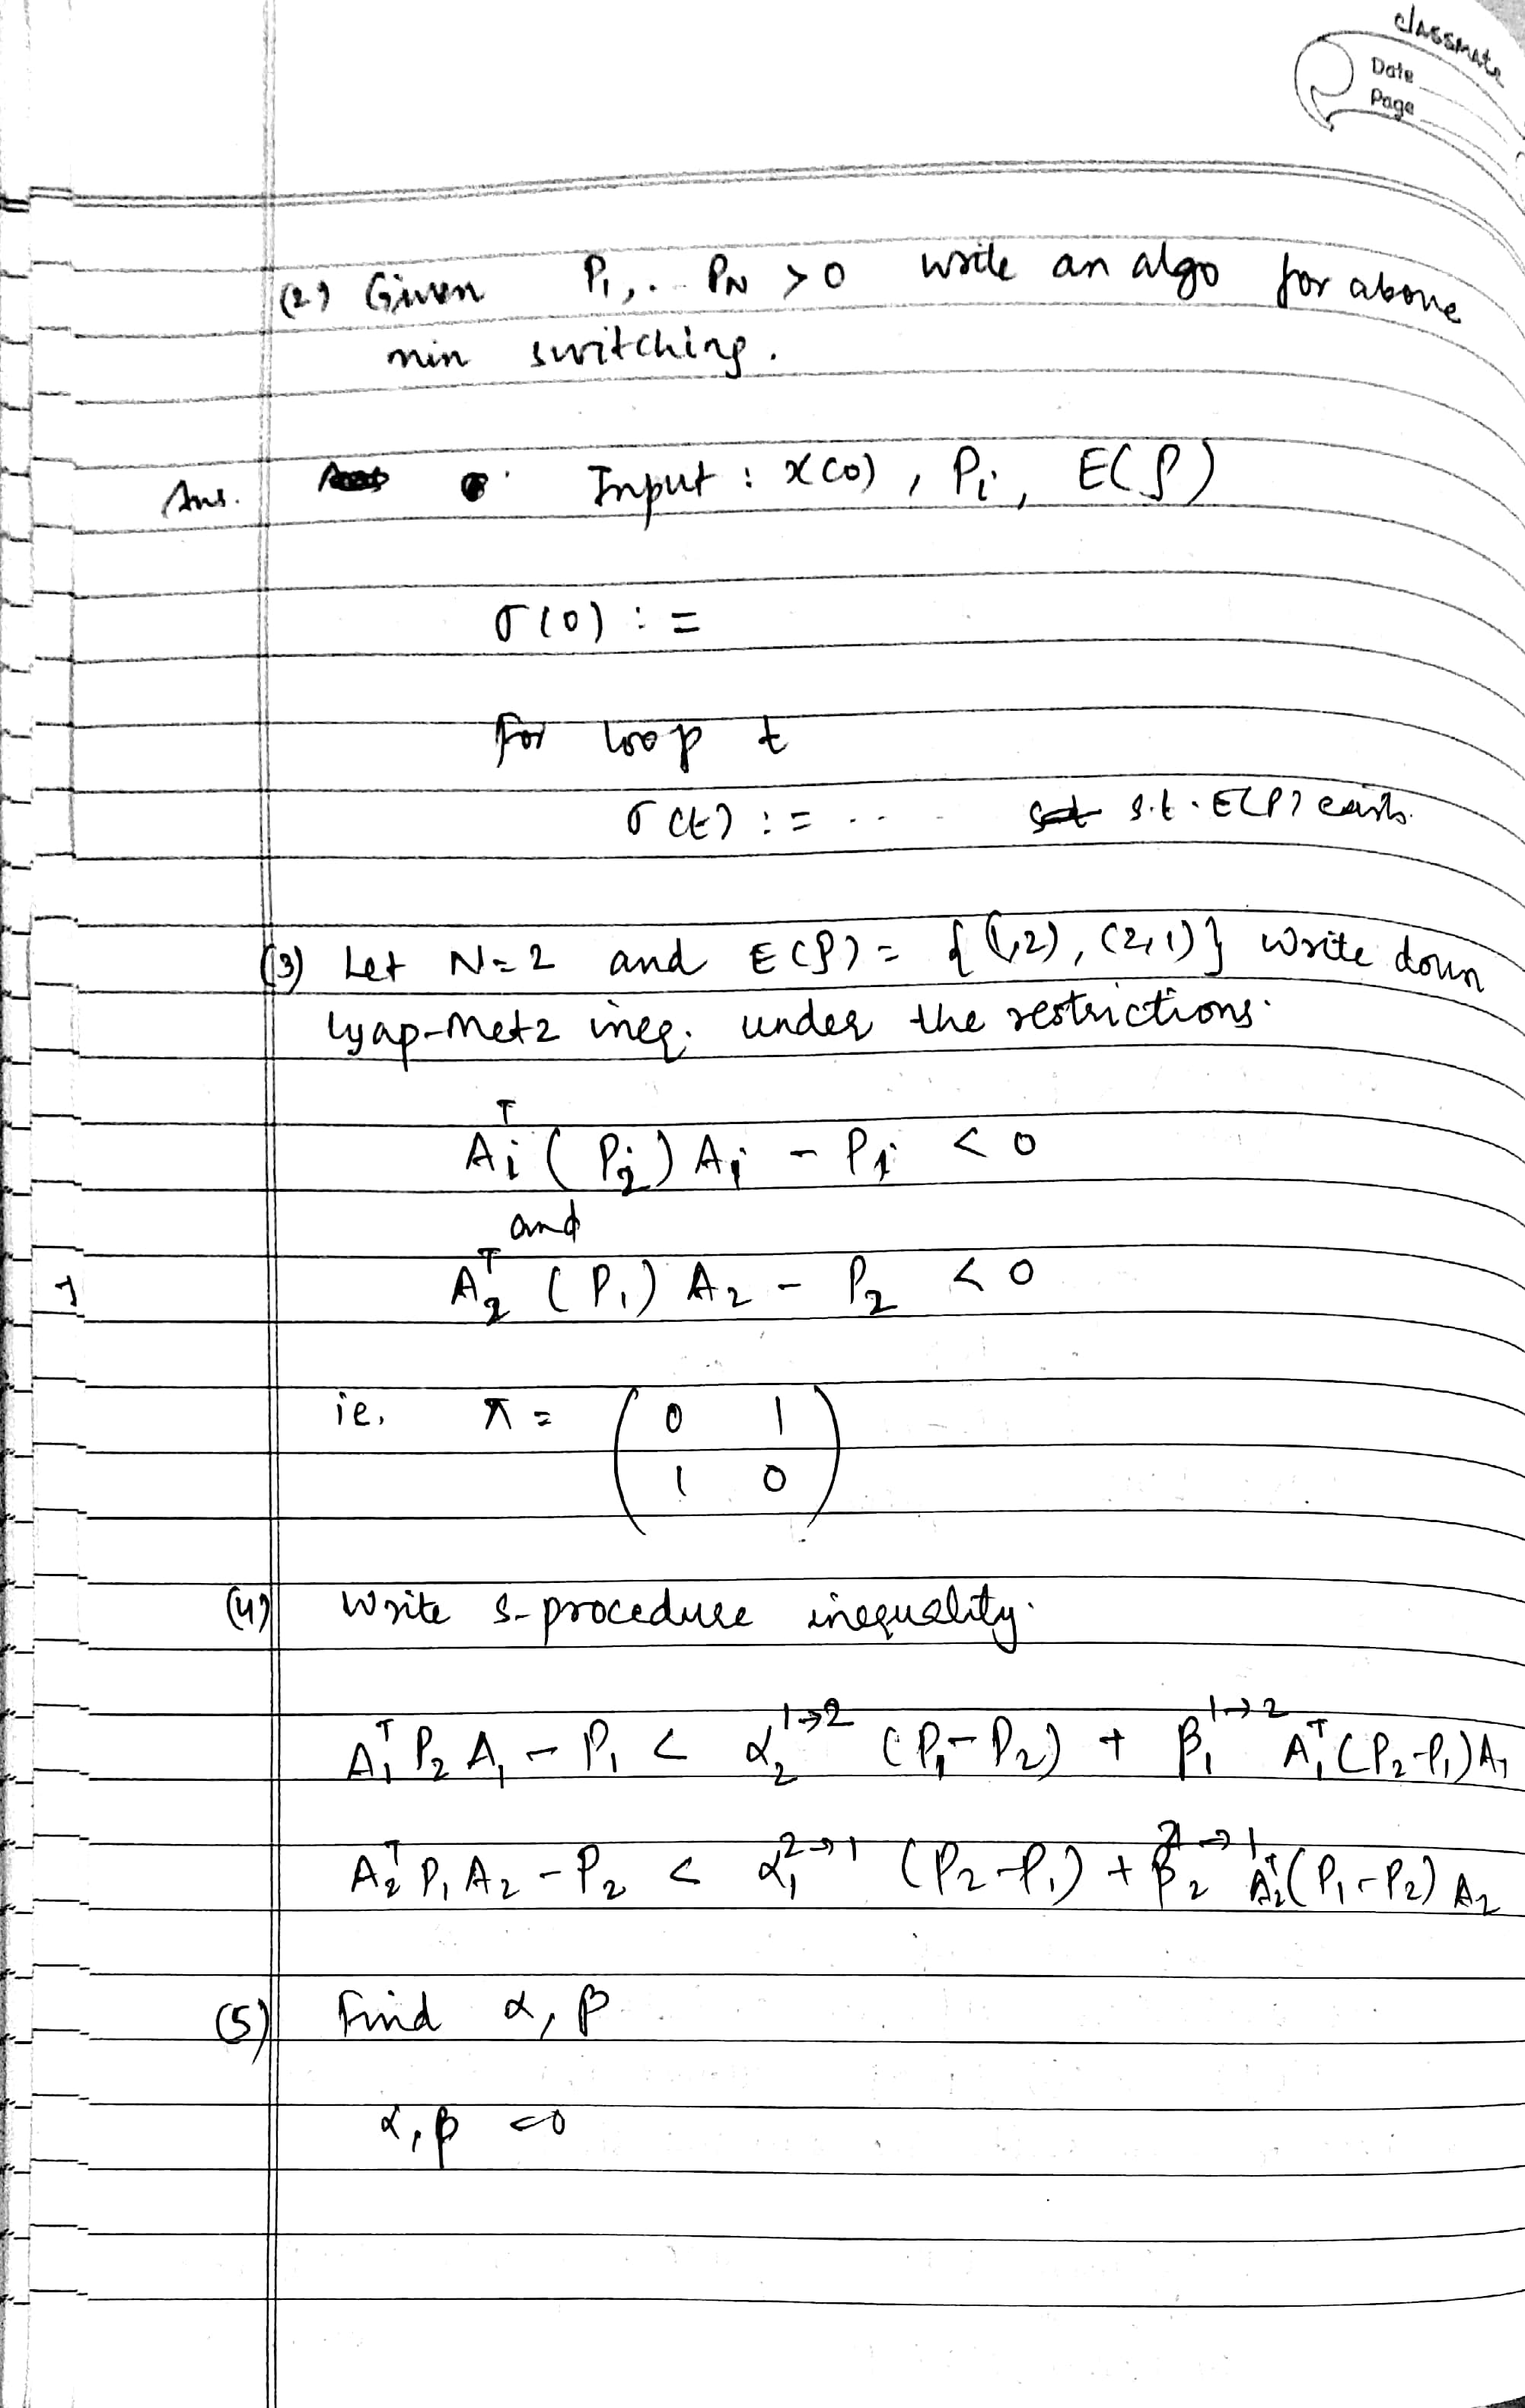 classmate
Date
Page
(2) Given P₁, .. P_N > 0 write an algo for above
min switching.
Ans. Input : x(0), Pᵢ, E(ρ)
σ(0) :=
for loop t
σ(t) := ... s.t. E(ρ)
(3) Let N=2 and E(ρ) = {(1,2), (2,1)} Write down
lyap-Metz ineq. under the restrictions.
A₁ᵀ (P₂) A₁ - P₁ < 0
and
A₂ᵀ (P₁) A₂ - P₂ < 0
ie. π = ( 0 1
1 0 )
(4) Write S-procedure inequality.
A₁ᵀ P₂ A₁ - P₁ < α₂^{1→2} (P₁ - P₂) + β₁^{1→2} A₁ᵀ (P₂ - P₁) A₁
A₂ᵀ P₁ A₂ - P₂ < α₁^{2→1} (P₂ - P₁) + β₂^{2→1} A₂ᵀ (P₁ - P₂) A₂
(5) Find α, β
α, β = 0